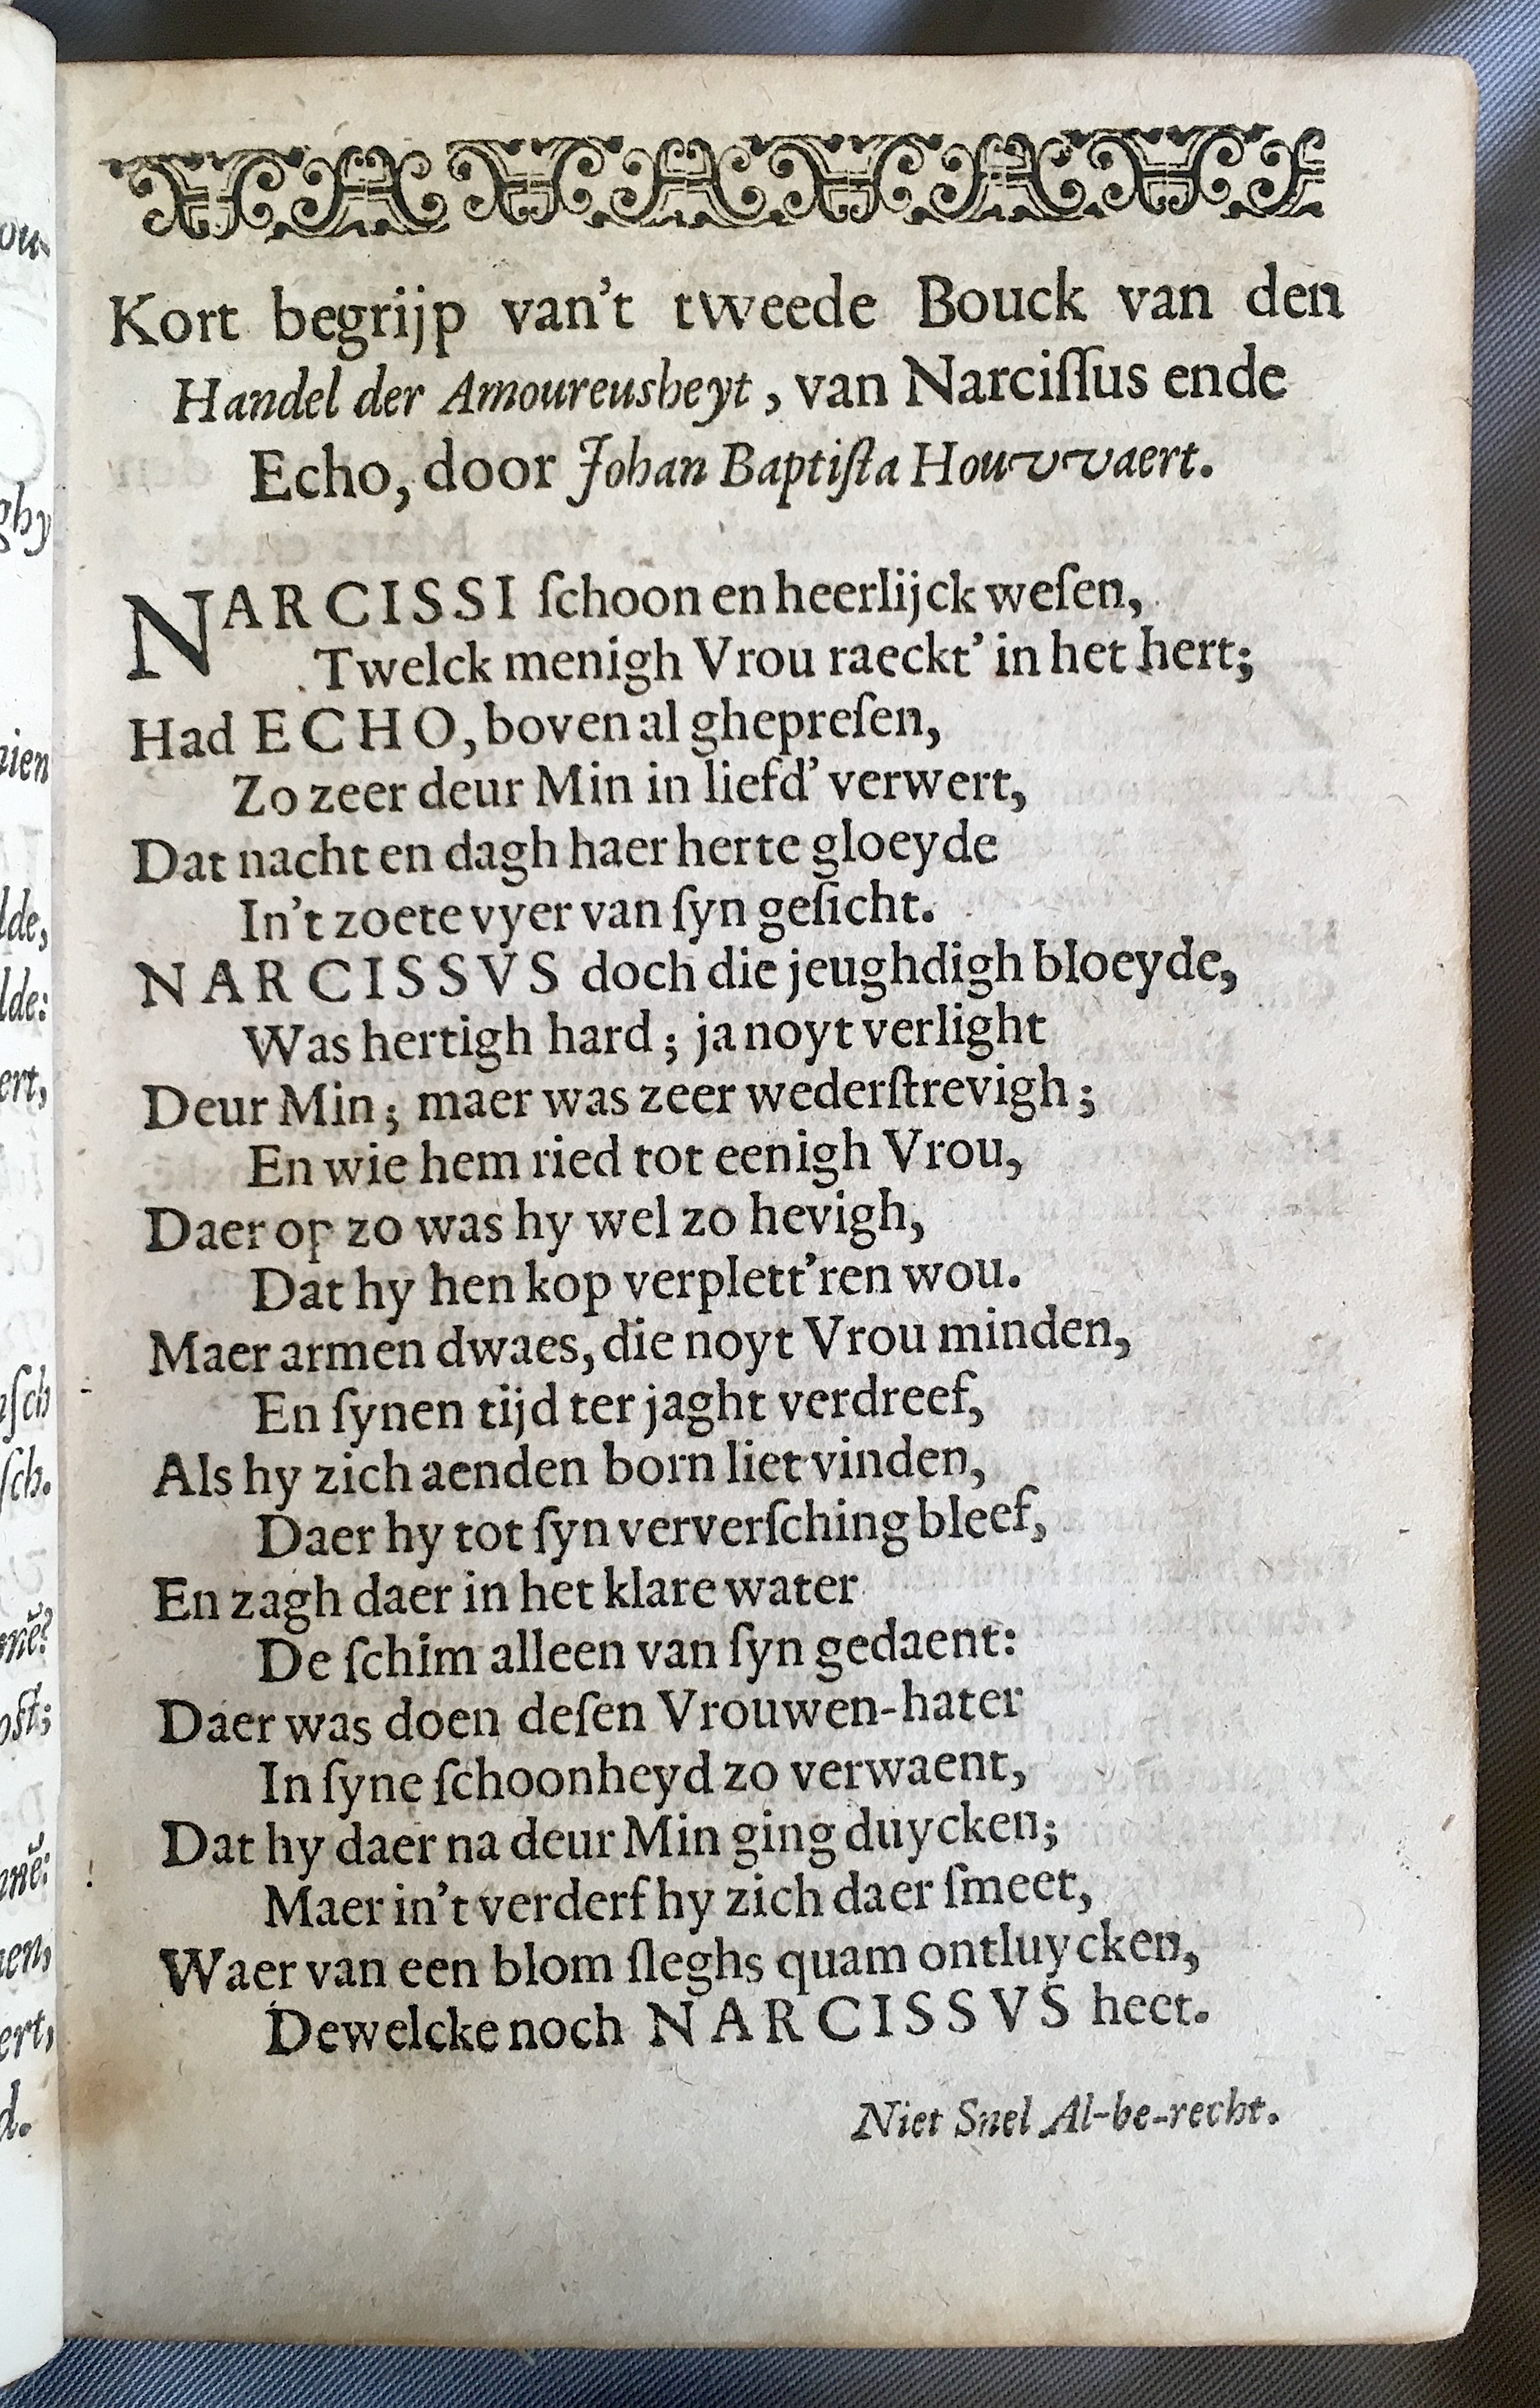 Kort begrijp van't tweede Bouck van den
Handel der Amoureusheyt, van Narciſſus ende
Echo, door Johan Baptiſta Houvvaert.
NARCISSI ſchoon en heerlijck weſen,
Twelck menigh Vrou raeckt' in het hert;
Had ECHO, boven al ghepreſen,
Zo zeer deur Min in liefd' verwert,
Dat nacht en dagh haer herte gloeyde
In't zoete vyer van ſyn geſicht.
NARCISSVS doch die jeughdigh bloeyde,
Was hertigh hard; ja noyt verlight
Deur Min; maer was zeer wederſtrevigh;
En wie hem ried tot eenigh Vrou,
Daer op zo was hy wel zo hevigh,
Dat hy hen kop verplett'ren wou.
Maer armen dwaes, die noyt Vrou minden,
En ſynen tijd ter jaght verdreef,
Als hy zich aenden born liet vinden,
Daer hy tot ſyn ververſching bleef,
En zagh daer in het klare water
De ſchim alleen van ſyn gedaent:
Daer was doen deſen Vrouwen-hater
In ſyne ſchoonheyd zo verwaent,
Dat hy daer na deur Min ging duycken;
Maer in't verderf hy zich daer ſmeet,
Waer van een blom ſleghs quam ontluycken,
Dewelcke noch NARCISSVS heet.
Niet Snel Al-be-recht.